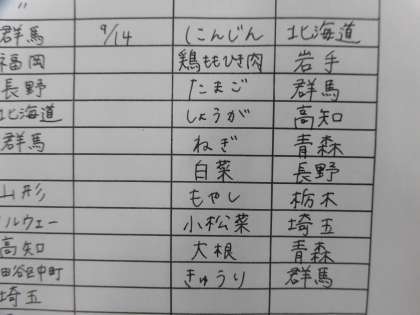 〃
群馬 9/14 にんじん 北海道
福岡 鶏ももひき肉 岩手
長野 たまご 群馬
北海道 しょうが 高知
群馬 ねぎ 青森
白菜 長野
山形 もやし 栃木
ルウェー 小松菜 埼玉
高知 大根 青森
田谷区中町 きゅうり 群馬
埼玉